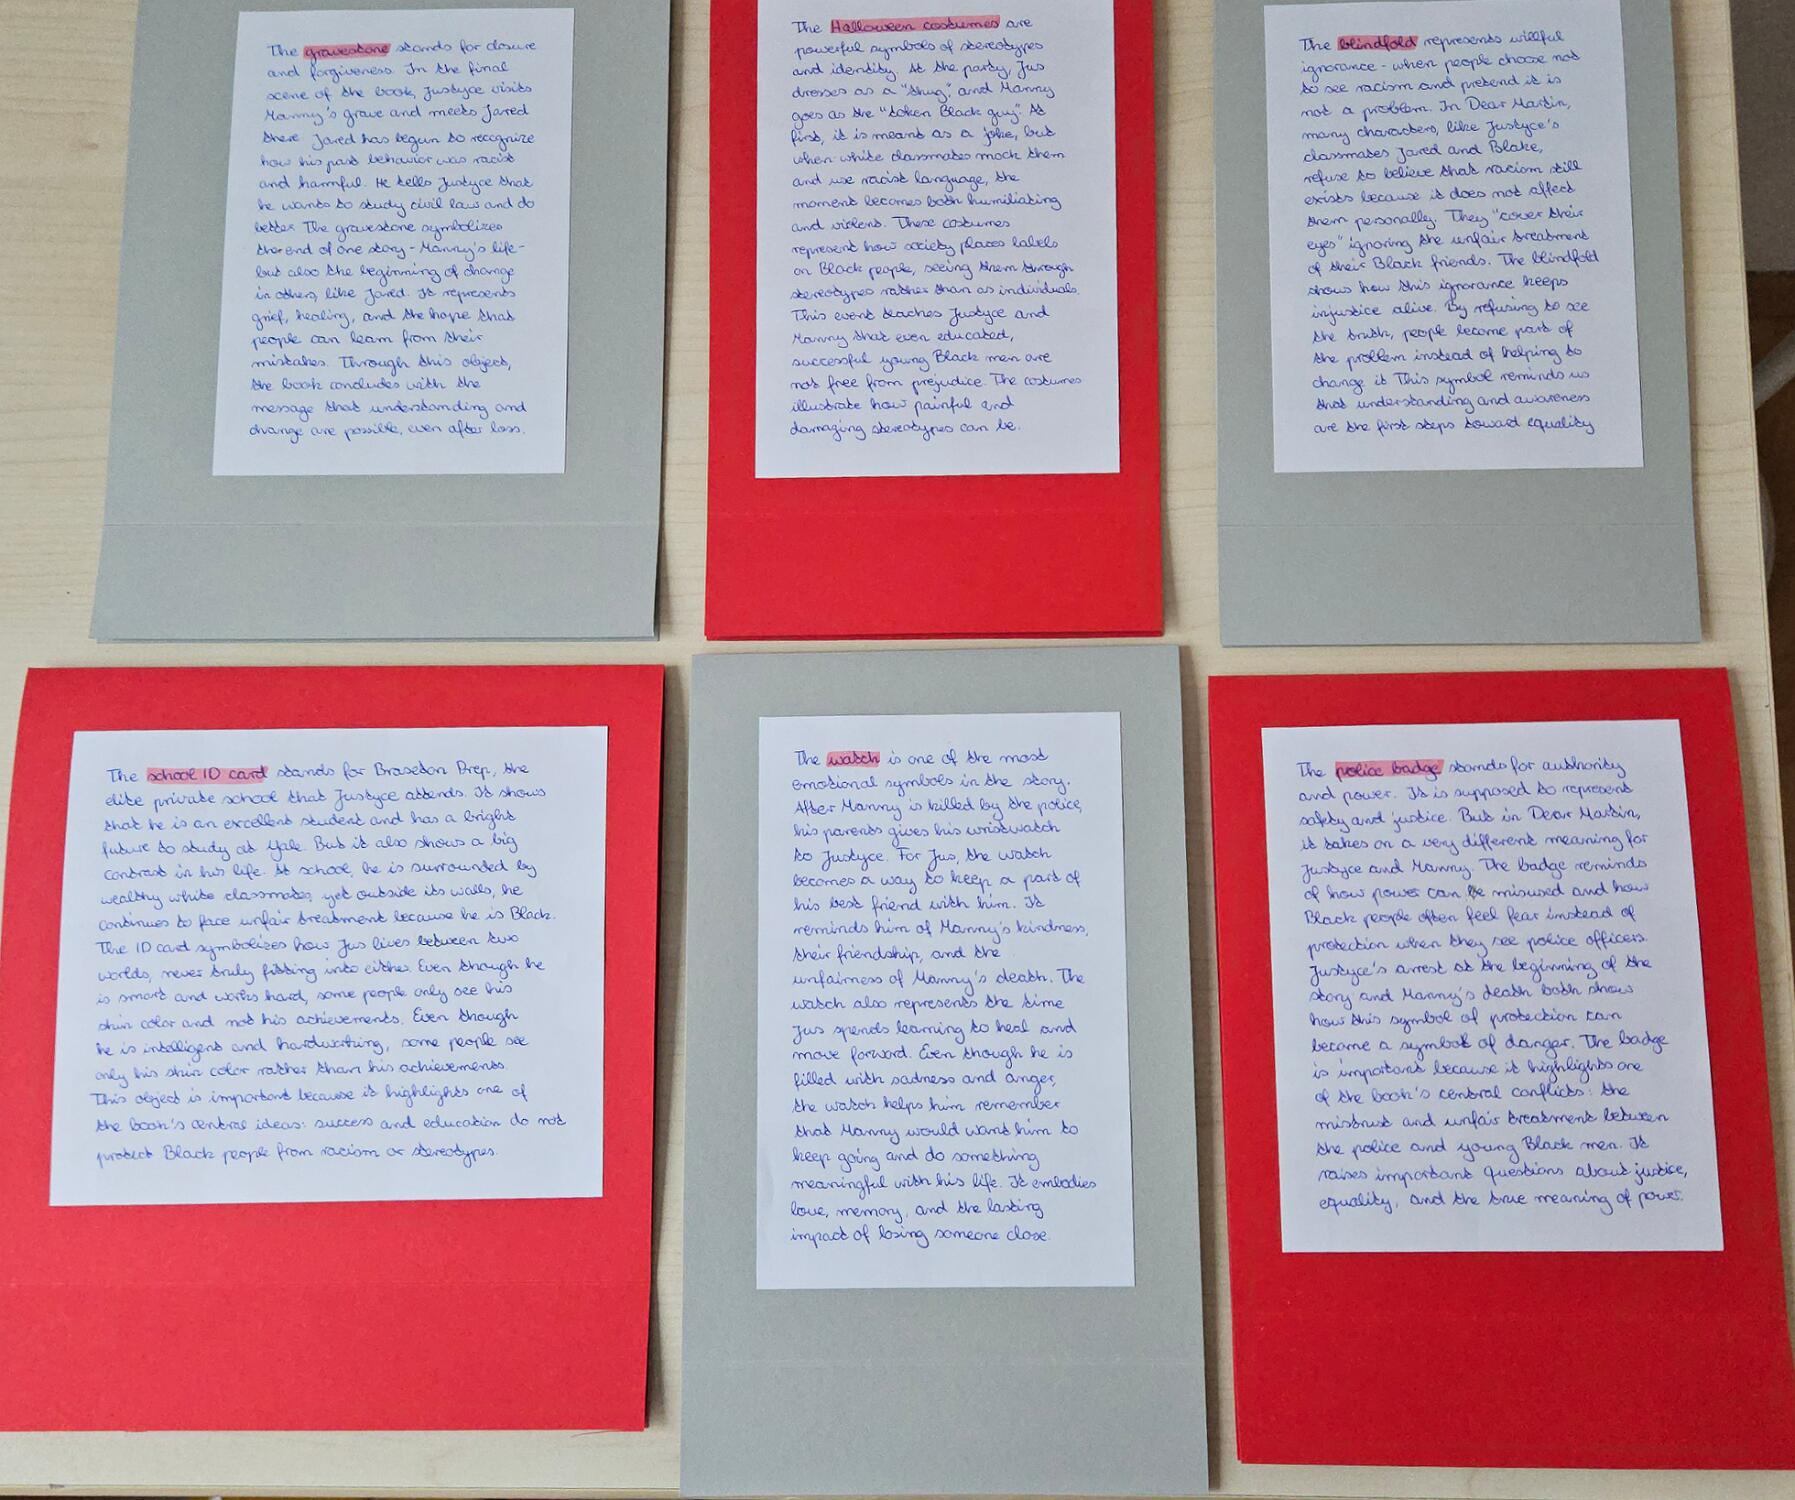 The gravestone stands for closure
and forgiveness. In the final
scene of the book, Justyce visits
Manny's grave and meets Jared
there. Jared has begun to recognize
how his past behavior was racist
and harmful. He tells Justyce that
he wants to study civil law and do
better. The gravestone symbolizes
the end of one story - Manny's life -
but also the beginning of change
in others, like Jared. It represents
grief, healing, and the hope that
people can learn from their
mistakes. Through this object,
the book concludes with the
message that understanding and
change are possible, even after loss.
The Halloween costumes are
powerful symbols of stereotypes
and identity. At the party, Jus
dresses as a "thug", and Manny
goes as the "token Black guy". At
first, it is meant as a joke, but
when white classmates mock them
and use racist language, the
moment becomes both humiliating
and violent. These costumes
represent how society places labels
on Black people, seeing them through
stereotypes rather than as individuals.
This event teaches Justyce and
Manny that even educated,
successful young Black men are
not free from prejudice. The costumes
illustrate how painful and
damaging stereotypes can be.
The blindfold represents willful
ignorance - when people choose not
to see racism and pretend it is
not a problem. In Dear Martin,
many characters, like Justyce's
classmates Jared and Blake,
refuse to believe that racism still
exists because it does not affect
them personally. They "cover their
eyes" ignoring the unfair treatment
of their Black friends. The blindfold
shows how this ignorance keeps
injustice alive. By refusing to see
the truth, people become part of
the problem instead of helping to
change it. This symbol reminds us
that understanding and awareness
are the first steps toward equality
The school ID card stands for Braseton Prep, the
elite private school that Justyce attends. It shows
that he is an excellent student and has a bright
future to study at Yale. But it also shows a big
contrast in his life. At school, he is surrounded by
wealthy white classmates, yet outside its walls, he
continues to face unfair treatment because he is Black.
The ID card symbolizes how Jus lives between two
worlds, never truly fitting into either. Even though he
is smart and works hard, some people only see his
skin color and not his achievements. Even though
he is intelligent and hardworking, some people see
only his skin color rather than his achievements.
This object is important because it highlights one of
the book's central ideas: success and education do not
protect Black people from racism or stereotypes.
The watch is one of the most
emotional symbols in the story.
After Manny is killed by the police,
his parents gives his wristwatch
to Justyce. For Jus, the watch
becomes a way to keep a part of
his best friend with him. It
reminds him of Manny's kindness,
their friendship, and the
unfairness of Manny's death. The
watch also represents the time
Jus spends learning to heal and
move forward. Even though he is
filled with sadness and anger,
the watch helps him remember
that Manny would want him to
keep going and do something
meaningful with his life. It embodies
love, memory, and the lasting
impact of losing someone close.
The police badge stands for authority
and power. It is supposed to represent
safety and justice. But in Dear Martin,
it takes on a very different meaning for
Justyce and Manny. The badge reminds
of how power can be misused and how
Black people often feel fear instead of
protection when they see police officers.
Justyce's arrest at the beginning of the
story and Manny's death both show
how this symbol of protection can
become a symbol of danger. The badge
is important because it highlights one
of the book's central conflicts: the
mistrust and unfair treatment between
the police and young Black men. It
raises important questions about justice,
equality, and the true meaning of power.